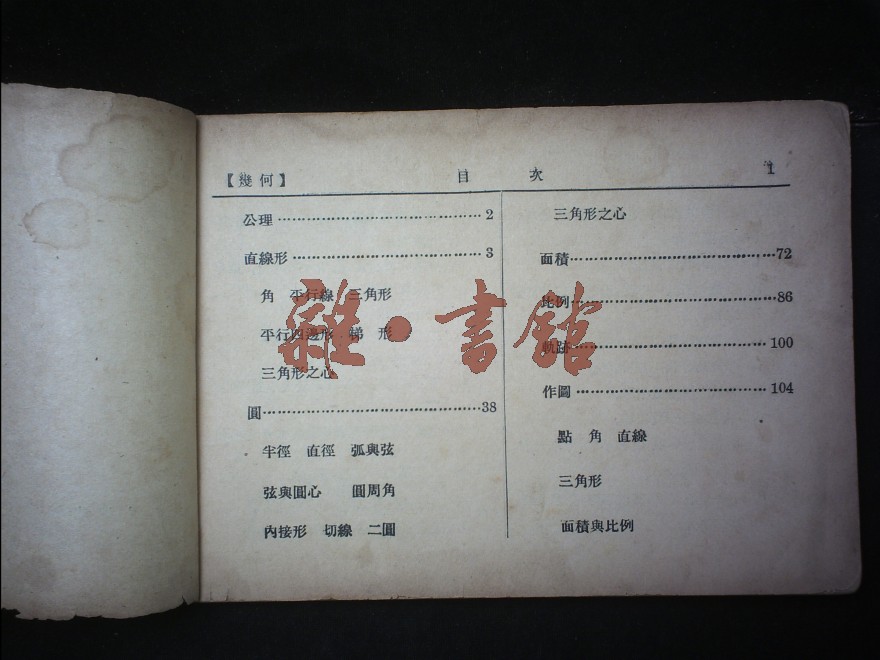 【幾何】 目 次 1
公理 2
直線形 3
角 平行線 三角形
平行四邊形 梯 形
三角形之心
圓 38
半徑 直徑 弧與弦
弦與圓心 圓周角
內接形 切線 二圓
三角形之心
面積 72
比例 86
軌跡 100
作圖 104
點 角 直線
三角形
面積與比例
雜·書館